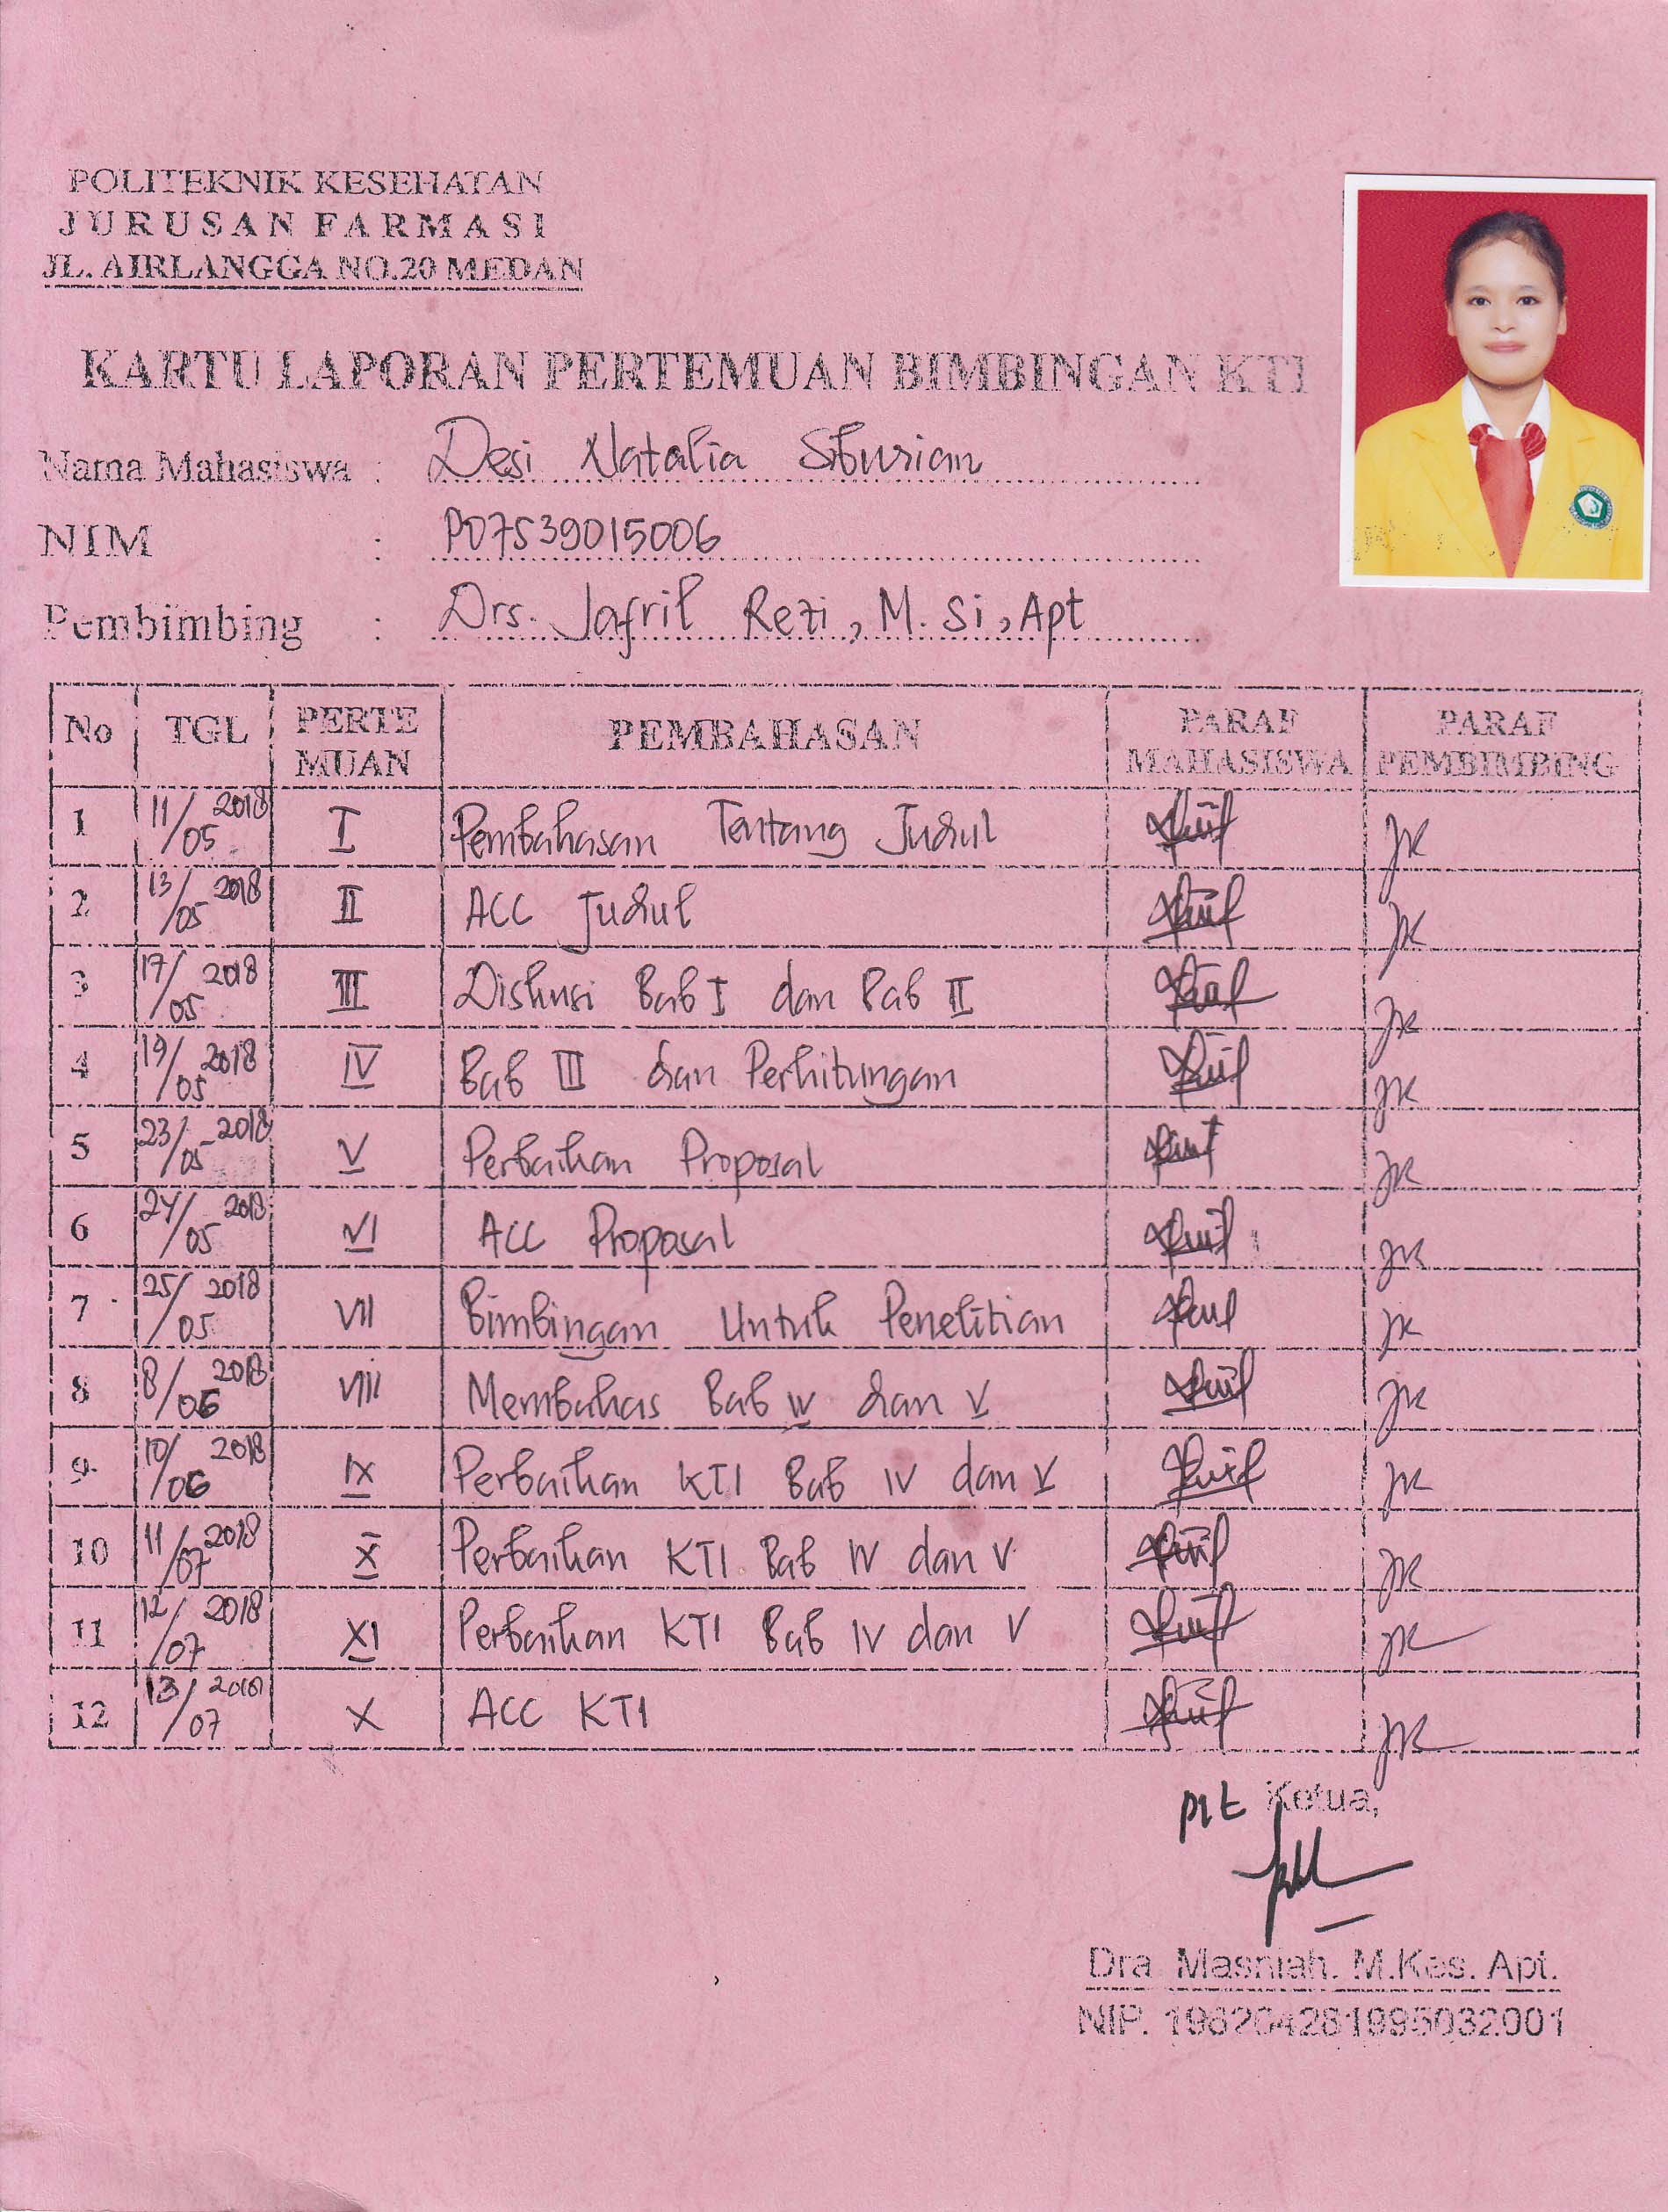 POLITEKNIK KESEHATAN
JURUSAN FARMASI
JL. AIRLANGGA NO.20 MEDAN
KARTU LAPORAN PERTEMUAN BIMBINGAN KTI
Nama Mahasiswa : Desi Natalia Siburian
NIM : P07539015006
Pembimbing : Drs. Jafril Rezi, M. Si, Apt
No TGL PERTE MUAN PEMBAHASAN PARAF MAHASISWA PARAF PEMBIMBING
1 11/05 2018 I Pembahasan Tentang Judul
2 13/05 2018 II ACC Judul
3 17/05 2018 III Diskusi Bab I dan Bab II
4 19/05 2018 IV Bab III dan Perhitungan
5 23/05 2018 V Perbaikan Proposal
6 24/05 2018 VI ACC Proposal
7 25/05 2018 VII Bimbingan Untuk Penelitian
8 8/06 2018 VIII Membahas Bab IV dan V
9 10/06 2018 IX Perbaikan KTI Bab IV dan V
10 11/07 2018 X Perbaikan KTI Bab IV dan V
11 12/07 2018 XI Perbaikan KTI Bab IV dan V
12 13/07 2018 X ACC KTI
Plt Ketua,
Dra. Masniah. M.Kes. Apt.
NIP. 196204281995032001